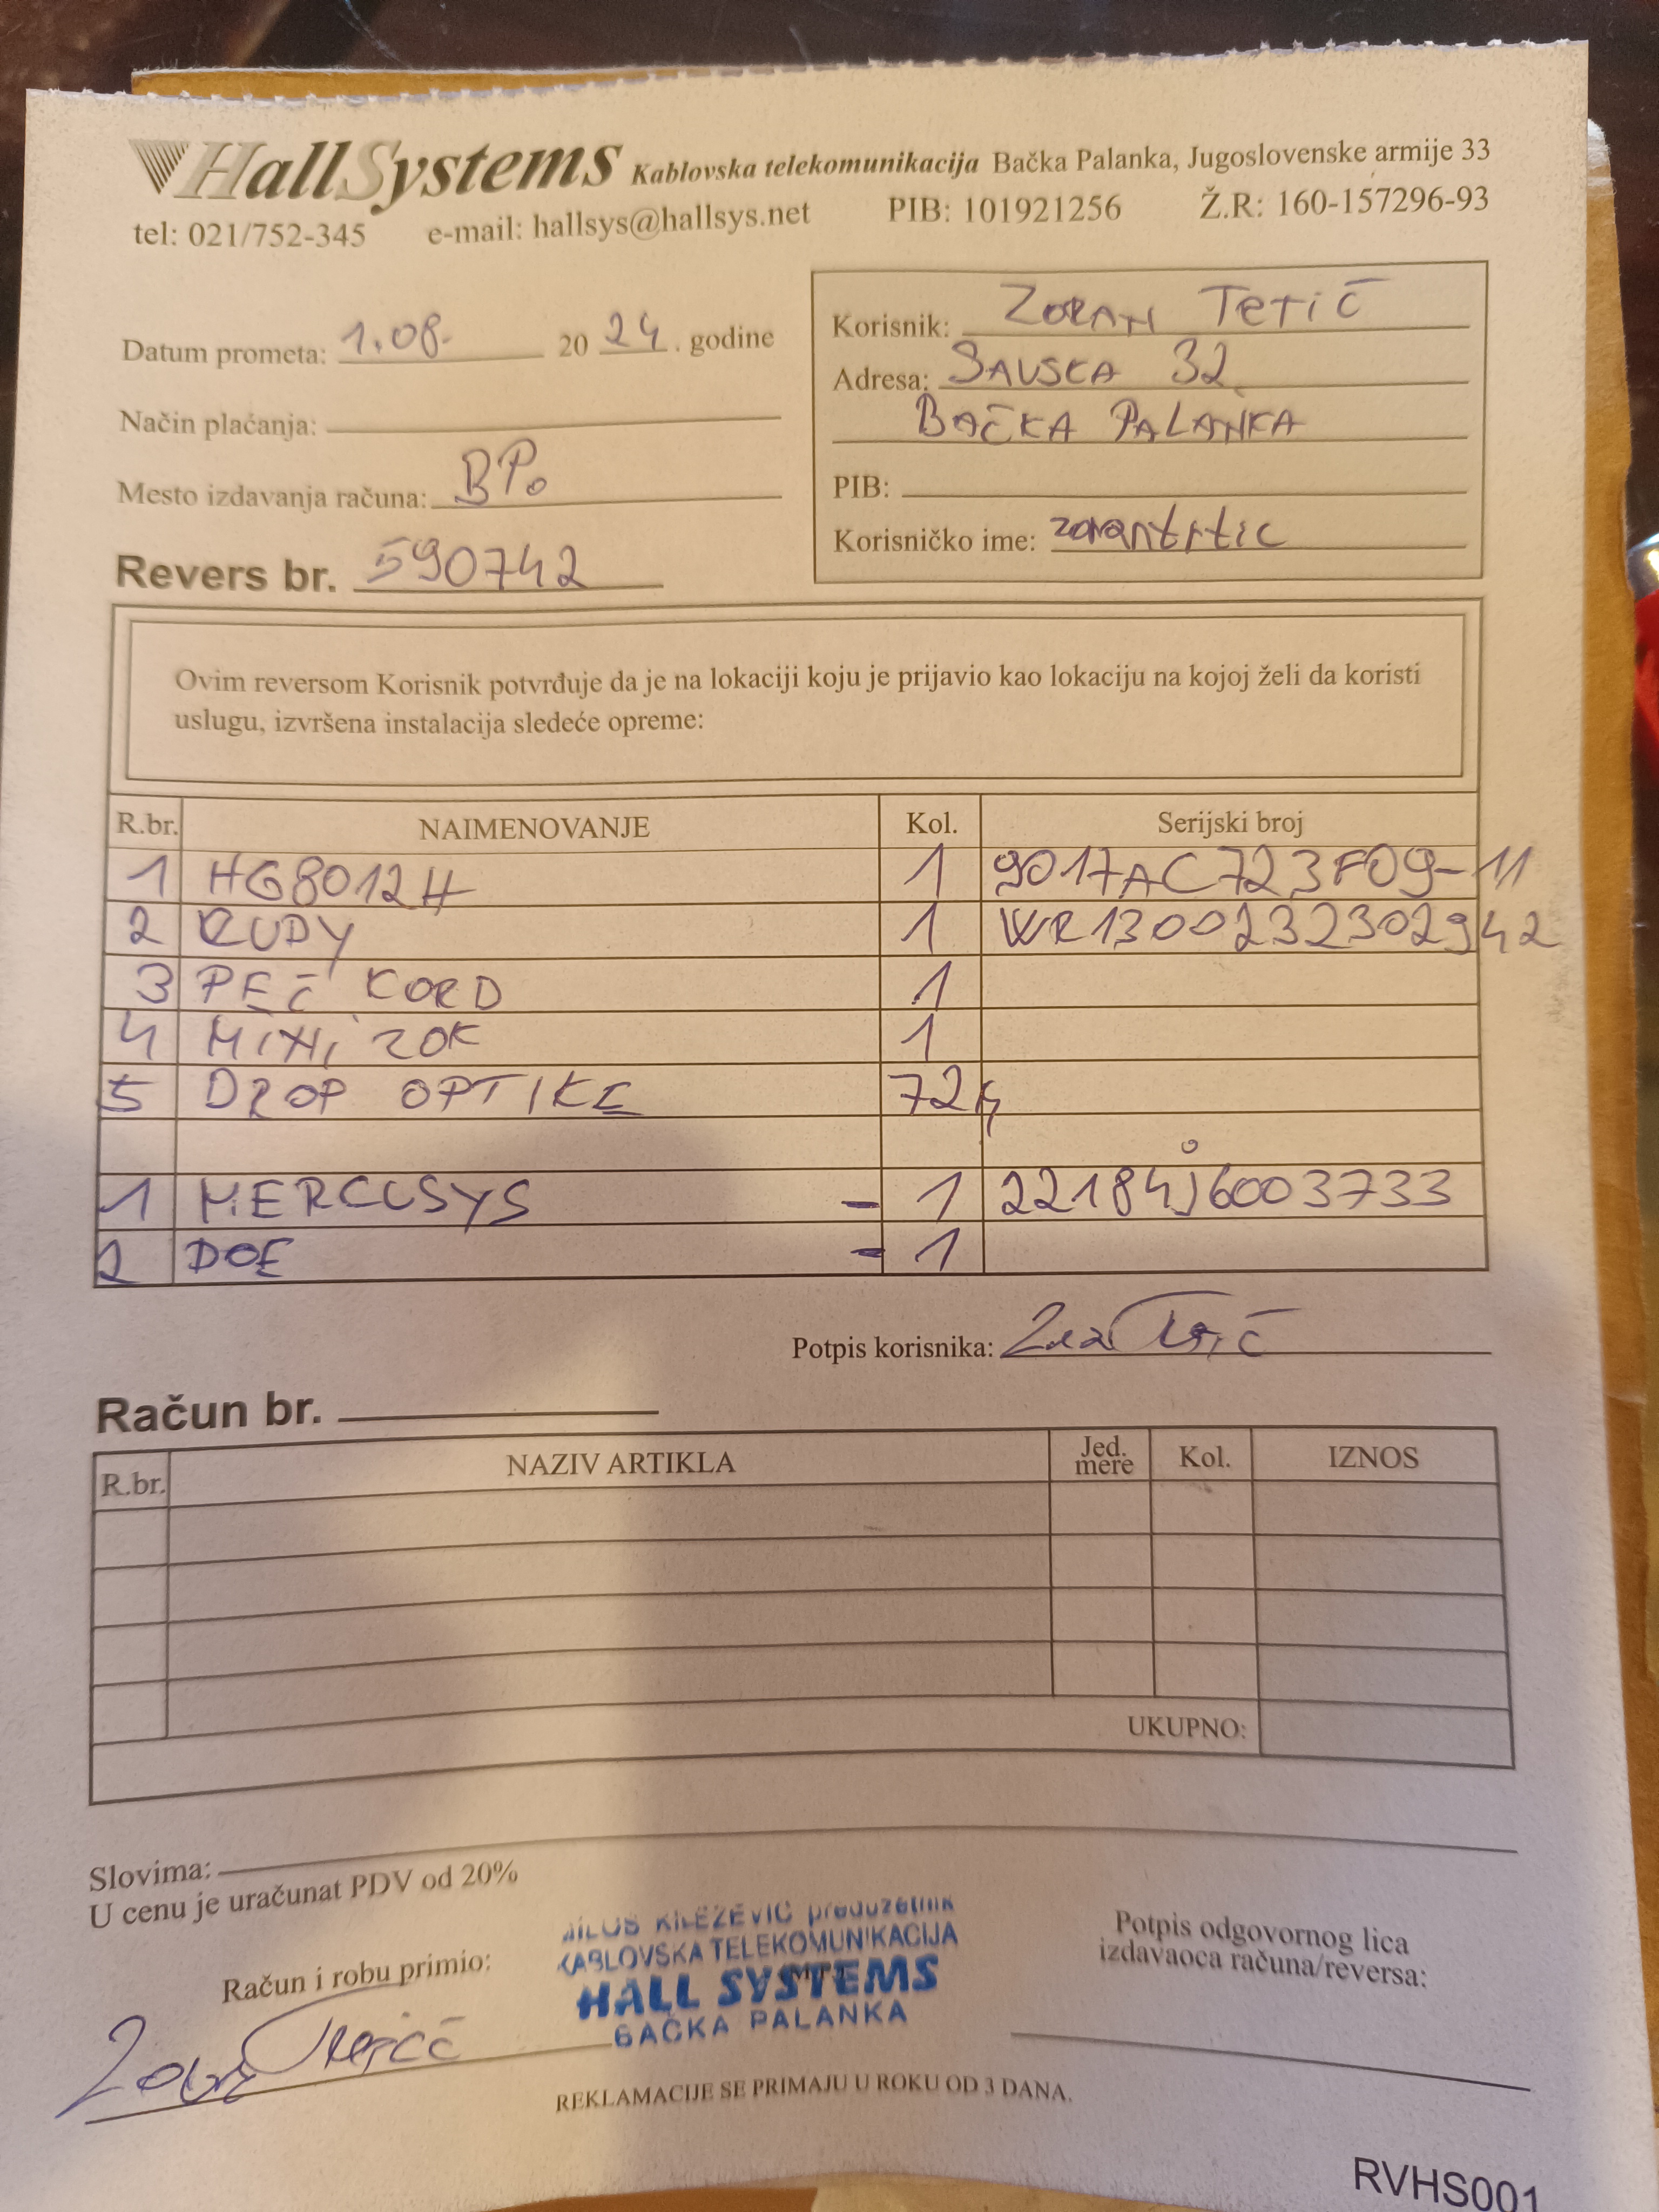 HallSystems Kablovska telekomunikacija Bačka Palanka, Jugoslovenske armije 33
tel: 021/752-345 e-mail: hallsys@hallsys.net PIB: 101921256 Ž.R: 160-157296-93
Datum prometa: 1.08. 20 24. godine
Način plaćanja:
Mesto izdavanja računa: BP.
Revers br. 590742
Korisnik: ZORAN TRTIĆ
Adresa: SAVSKA 32
BAČKA PALANKA
PIB:
Korisničko ime: zorantrtic
Ovim reversom Korisnik potvrđuje da je na lokaciji koju je prijavio kao lokaciju na kojoj želi da koristi
uslugu, izvršena instalacija sledeće opreme:
R.br. NAIMENOVANJE Kol. Serijski broj
1 HG8012H 1 9017AC723F09-11
2 RUDY 1 WR1300232302942
3 PEČ KORD 1
4 MINI ZOK 1
5 DROP OPTIKE 724
1 MERCUSYS - 1 22184J6003733
2 DOE - 1
Potpis korisnika:
Račun br.
R.br. NAZIV ARTIKLA Jed. mere Kol. IZNOS
UKUPNO:
Slovima:
U cenu je uračunat PDV od 20%
Računi robu primio:
MILOŠ KNEŽEVIĆ preduzetnik
KABLOVSKA TELEKOMUNIKACIJA
HALL SYSTEMS
BAČKA PALANKA
Potpis odgovornog lica
izdavaoca računa/reversa:
REKLAMACIJE SE PRIMAJU U ROKU OD 3 DANA.
RVHS001